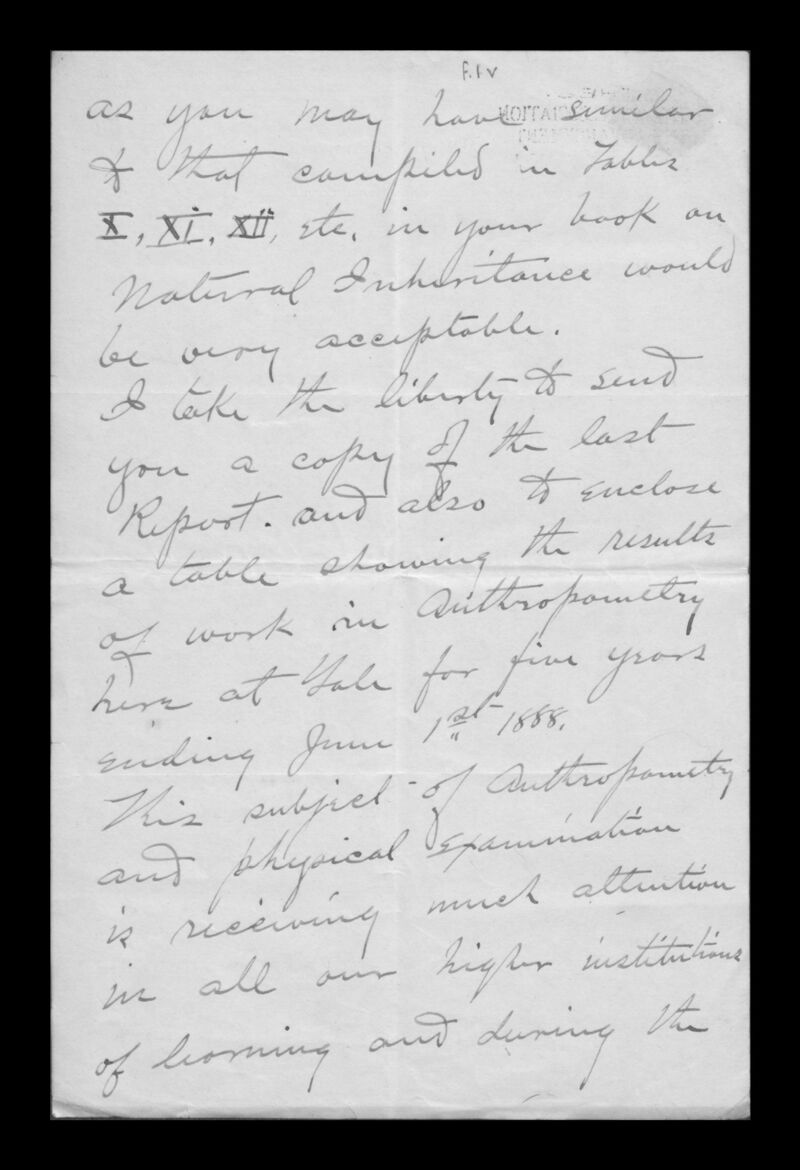 f.1v
as you may have similar
to that compiled in Tables
X, XI, XII, etc. in your book on
Natural Inheritance would
be very acceptable.
I take the liberty to send
you a copy of the last
Report. and also to enclose
a table showing the results
of work in Anthropometry
here at Yale for five years
ending June 1st 1888.
This subject of Anthropometry
and physical examination
is receiving much attention
in all our higher institutions
of learning and during the